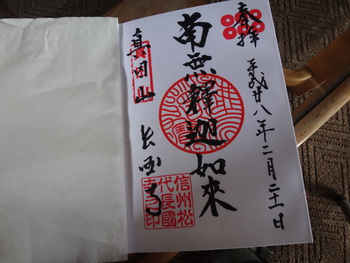 奉拝
平成廿八年二月二十一日
南無釋迦如來
真田山
長国寺
信州松
代長國
寺印